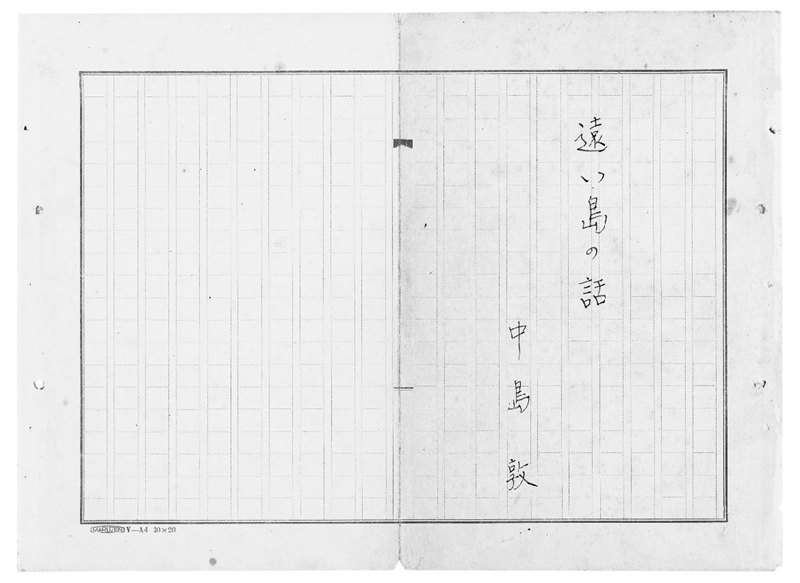 遠い島の話
中島敦
MARUZEN W—A4 10×20